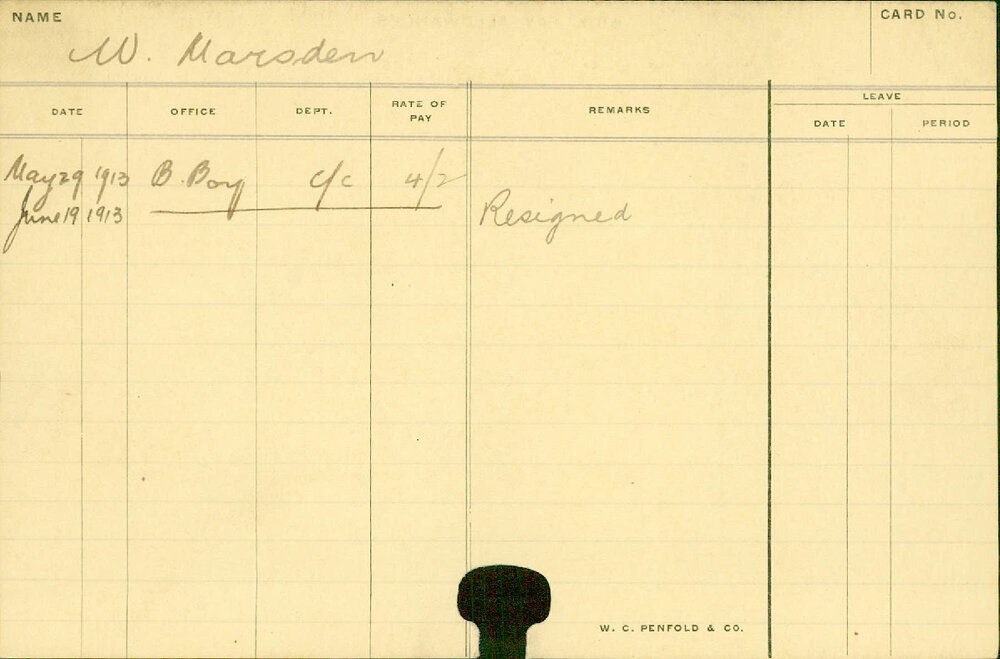 NAME CARD No.
W. Marsden
DATE OFFICE DEPT. RATE OF PAY REMARKS LEAVE
DATE PERIOD
May 29 1913 B. Boy c/c 4/2
June 19 1913 Resigned
W. C. PENFOLD & CO.